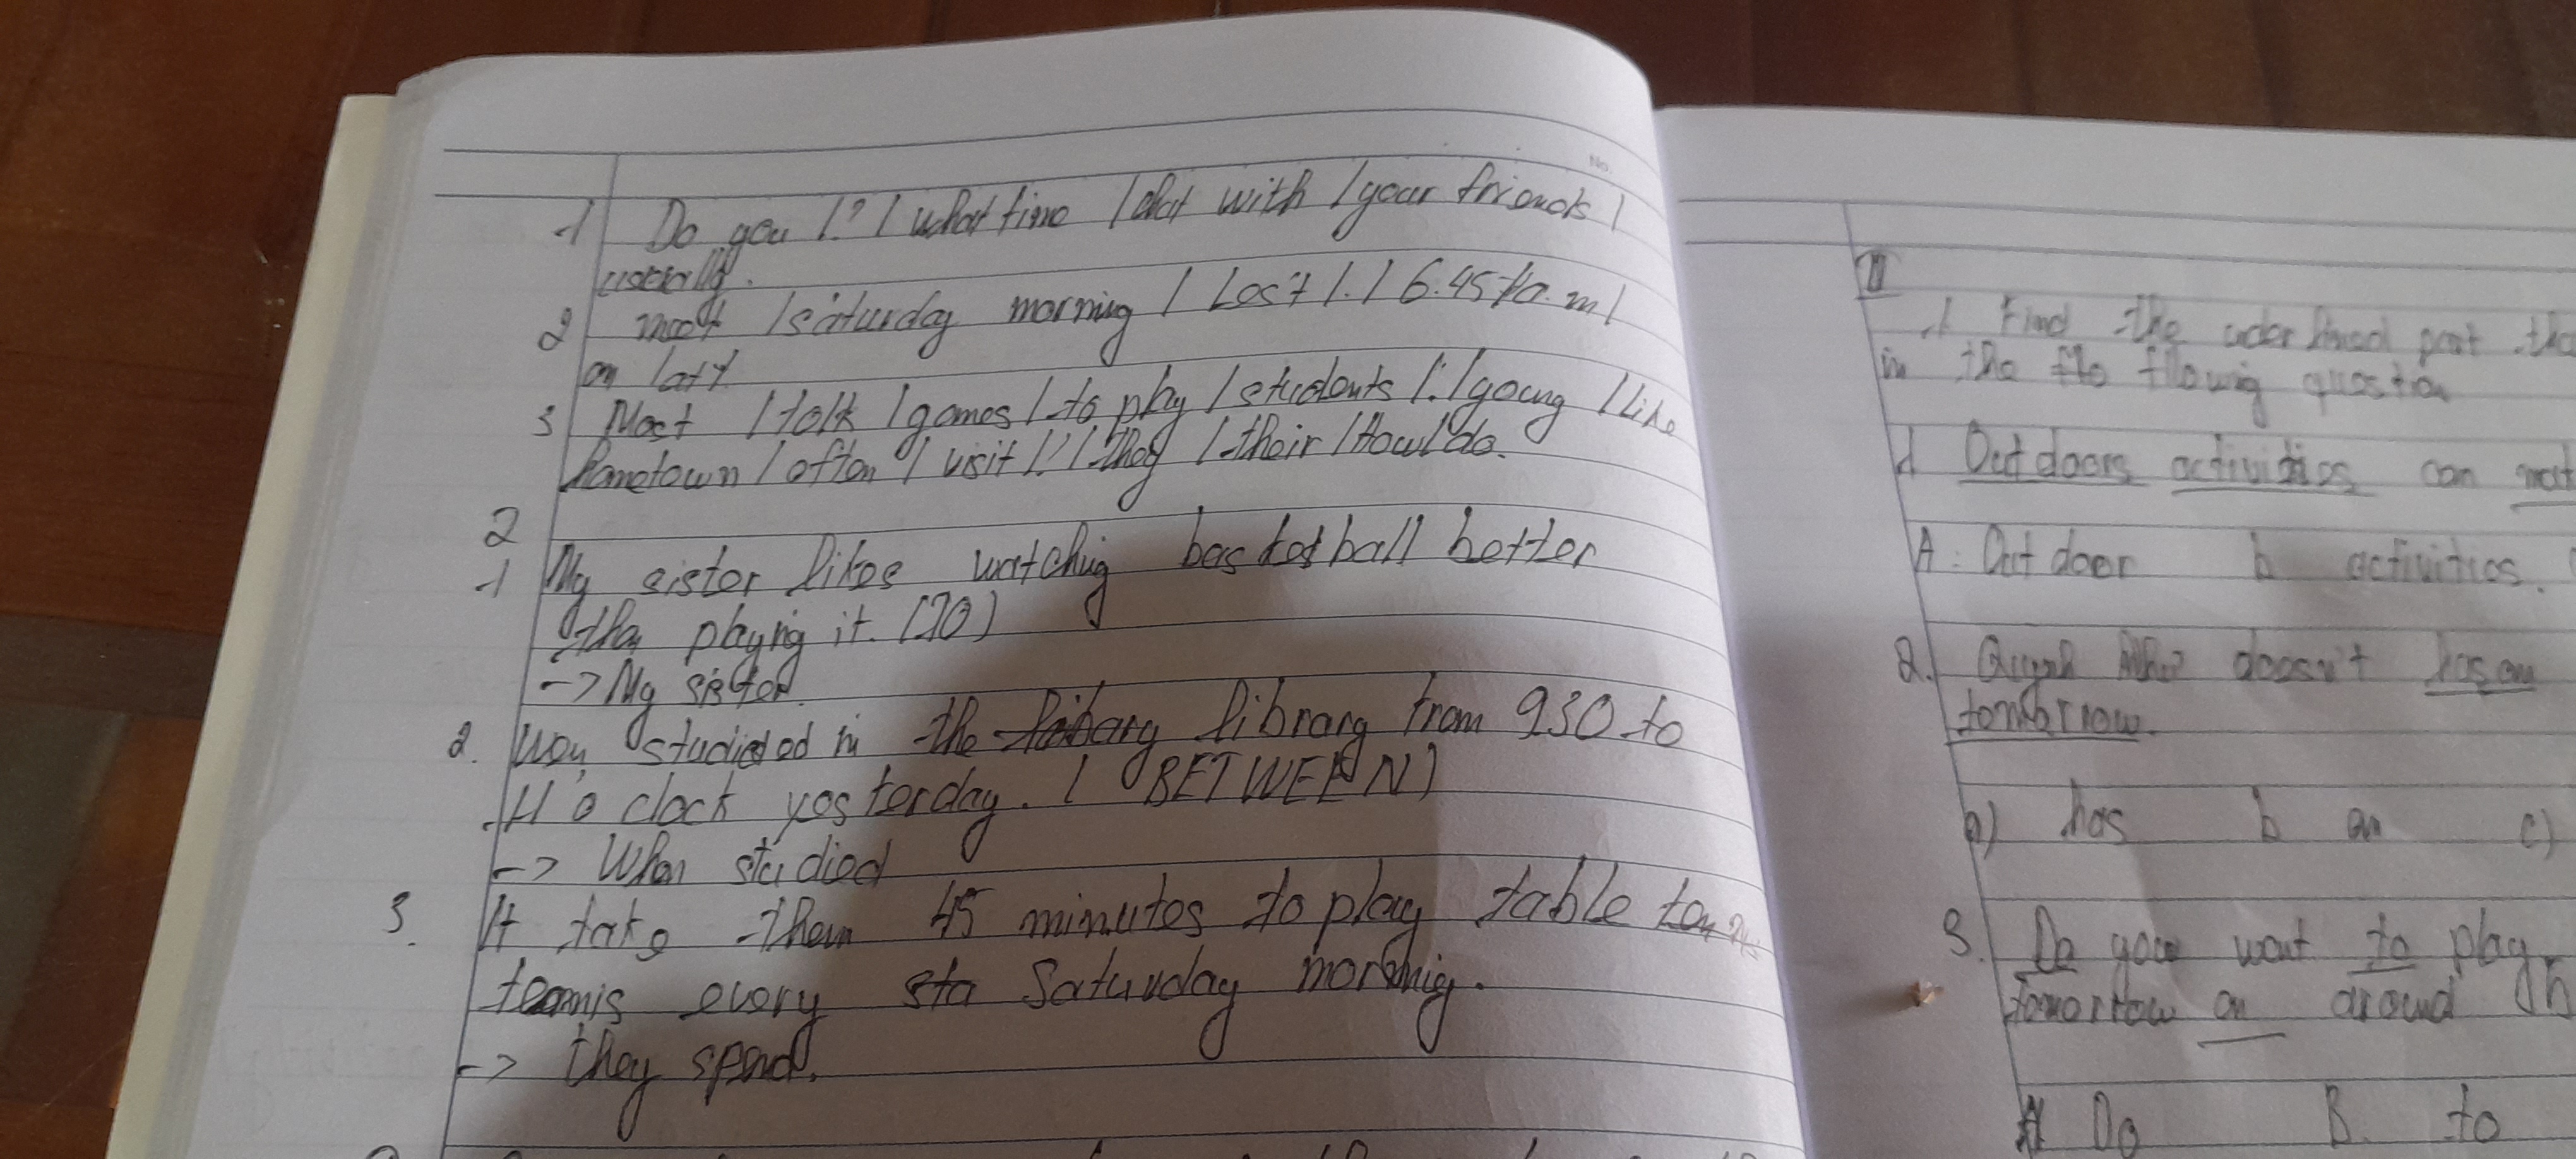 1 Do you / ? / what time / chat with / your friends /
usually.
2 meet / saturday morning / Let's / . / 6.45 / a.m /
on / at /
3 Most / talk / games / to play / students / . / young / like
hometown / often / visit / ? / they / their / How / do.
2
1 My sister likes watching basketball better
than playing it. (TO)
-> My sister
2. studied in the library from 930 to
11 o clock yesterday. ( BETWEEN )
-> When studied
3. It take them 45 minutes to play table
tennis every sta Saturday morning.
-> they spend.
II
1 Find the underlined part
in the flo flowing question
1 Outdoors activities can
A: Outdoor b activities.
2. doesn't has an
tomorrow.
a) has b an c)
3. Do you want to play
tomorrow on around
A Do B. to